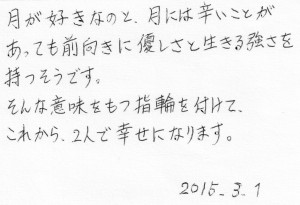 月が好きなのと、月には辛いことが
あっても前向きに優しさと生きる強さを
持つそうです。
そんな意味をもつ指輪を付けて、
これから、2人で幸せになります。
2015_3_1